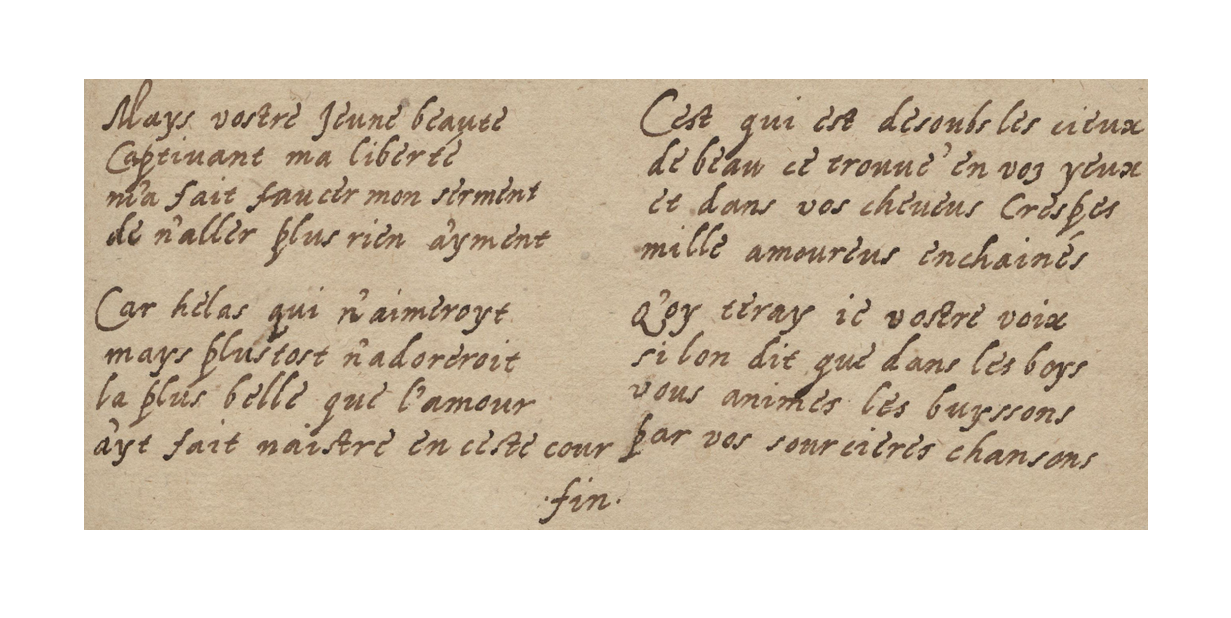 Mays vostre Jeune beaute
Captiuant ma liberte
m'a fait faucer mon serment
de n'aller plus rien ayment
Car helas qui n'aimeroyt
mays plustost n'adoreroit
la plus belle que l'amour
ayt fait naistre en ceste cour
Cest qui est desoubs les cieux
de beau ce trouue en voz yeux
et dans vos cheueus Crespes
mille amoureus enchainés
Q'oy teray ie vostre voix
si lon dit que dans les boys
vous animes les buyssons
par vos sourcieres chansons
.fin.